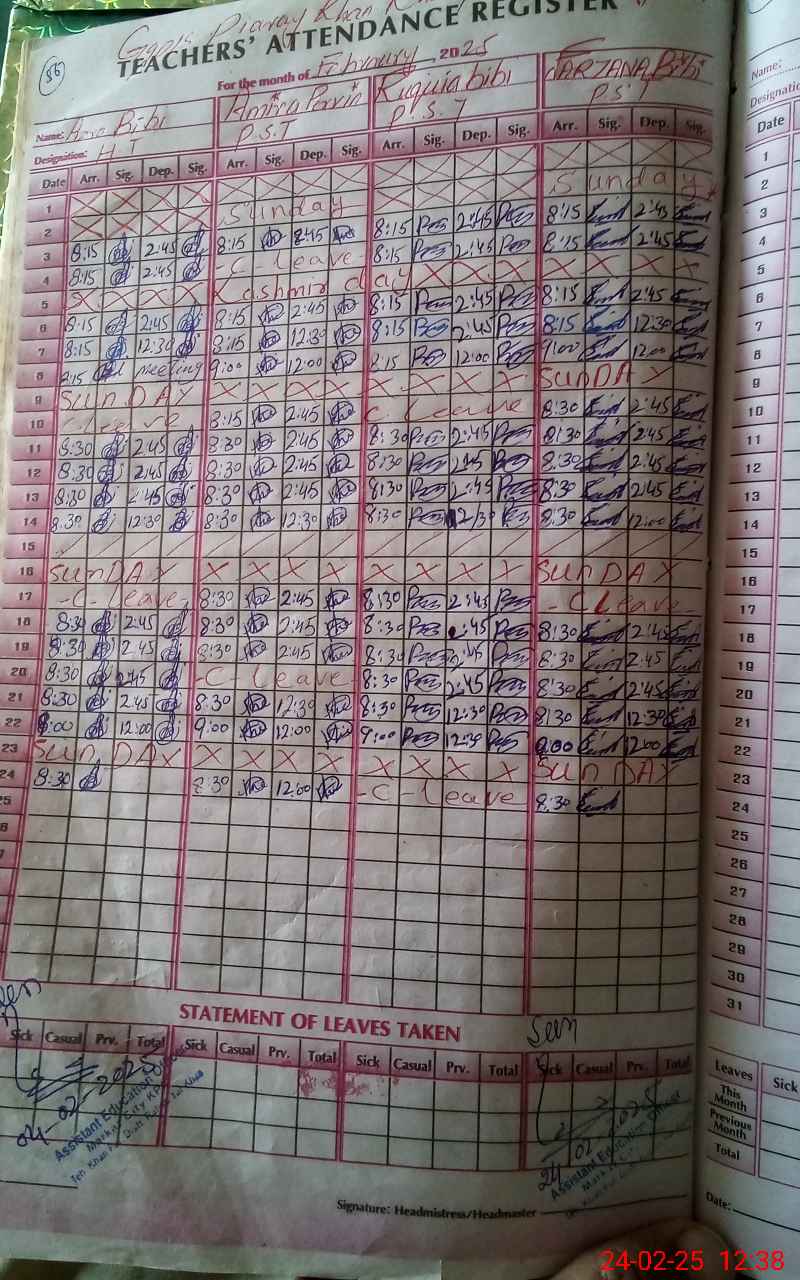 56
TEACHERS' ATTENDANCE REGISTER
For the month of February, 2025
Name: Bibi Amina Parvin Ruquia bibi FARZANA Bibi
Designation: H-T P.S.T P.S.T P.S.T
Date Arr. Sig. Dep. Sig. Arr. Sig. Dep. Sig. Arr. Sig. Dep. Sig. Arr. Sig. Dep. Sig.
1 X X X X X X X X X X X X X X X X 1
2 X X X X Sunday X X X X Sunday 2
3 8:15 2:45 8:15 2:45 8:15 2:45 8:15 2:45 3
4 8:15 2:45 C-Leave 8:15 2:45 8:15 2:45 4
5 X X X X Kashmir day X X X X X X X 5
6 8:15 2:45 8:15 2:45 8:15 2:45 8:15 2:45 6
7 8:15 12:30 8:15 12:30 8:15 2:45 8:15 12:30 7
8 8:15 meeting 9:00 12:00 8:15 12:00 9:00 12:00 8
9 SUNDAY X X X X X X X X SUNDAY 9
10 C-Leave 8:15 2:45 C-Leave 8:30 2:45 10
11 8:30 2:45 8:30 2:45 8:30 2:45 8:30 2:45 11
12 8:30 2:45 8:30 2:45 8:30 2:45 8:30 2:45 12
13 8:30 2:45 8:30 2:45 8:30 2:45 8:30 2:45 13
14 8:30 12:30 8:30 12:30 8:30 12:30 8:30 12:00 14
15 15
16 SUNDAY X X X X X X X X SUNDAY 16
17 -C-Leave- 8:30 2:45 8:30 2:45 -C Leave- 17
18 8:30 2:45 8:30 2:45 8:30 2:45 8:30 2:45 18
19 8:30 2:45 8:30 2:45 8:30 2:45 8:30 2:45 19
20 8:30 2:45 -C-Leave- 8:30 2:45 8:30 2:45 20
21 8:30 2:45 8:30 12:30 8:30 12:30 8:30 12:30 21
22 9:00 12:00 9:00 12:00 9:00 12:30 9:00 12:00 22
23 SUNDAY X X X X X X X X SUNDAY 23
24 8:30 8:30 12:00 -C-Leave 8:30 24
25 25
26
27
28
29
30
31
STATEMENT OF LEAVES TAKEN
Sick Casual Prv. Total Sick Casual Prv. Total Sick Casual Prv. Total Sick Casual Prv. Total
Seen
04-02-2025
Assistant Education Officer
Seen
24-02-2025
Assistant Education Officer
Signature: Headmistress/Headmaster
Name:
Date
1
2
3
4
5
6
7
8
9
10
11
12
13
14
15
16
17
18
19
20
21
22
23
24
25
26
27
28
29
30
31
Leaves Sick
This Month
Previous Month
Total
Date:
24-02-25 12:38